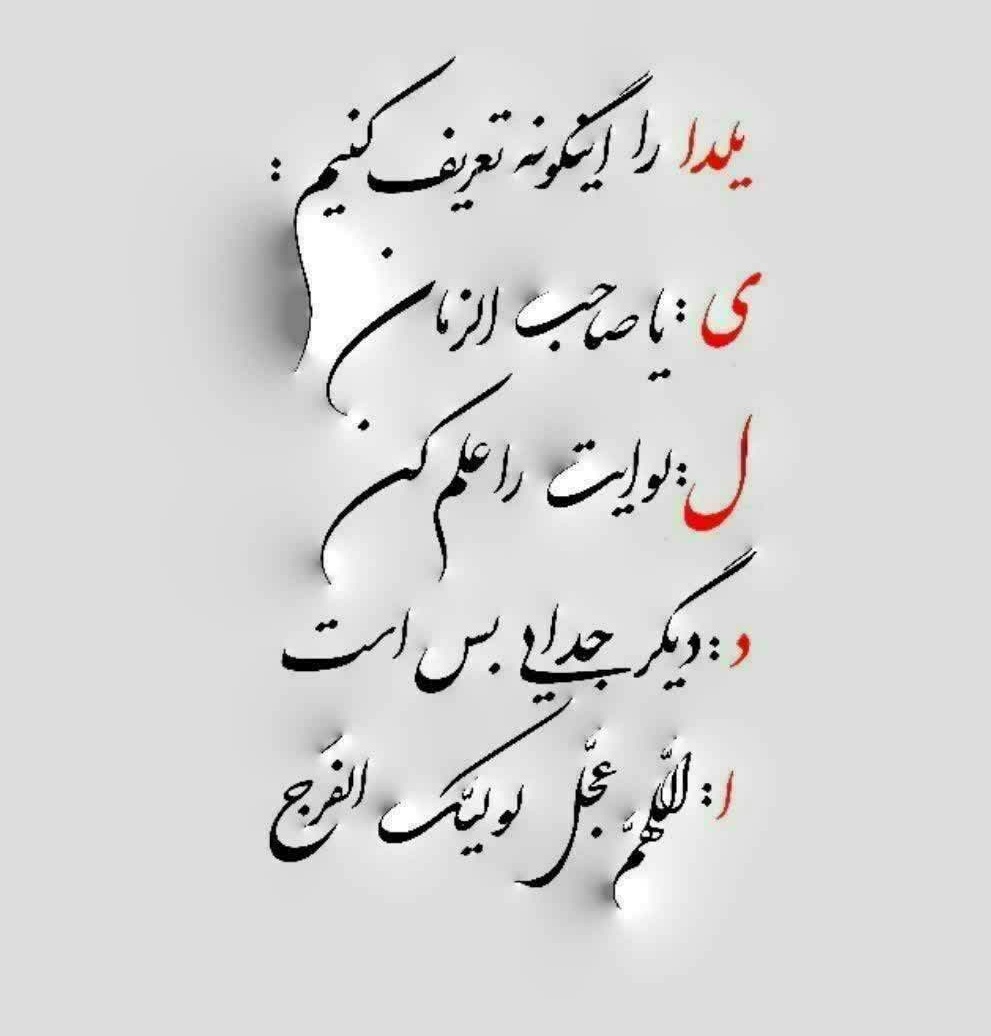 یلدا را اینگونه تعریف کنیم :
ی : یا صاحب الزمان
ل : لوایت را علم کن
د : دیگر جدایی بس است
ا : اللّهمَّ عجّل لولیّک الفَرج